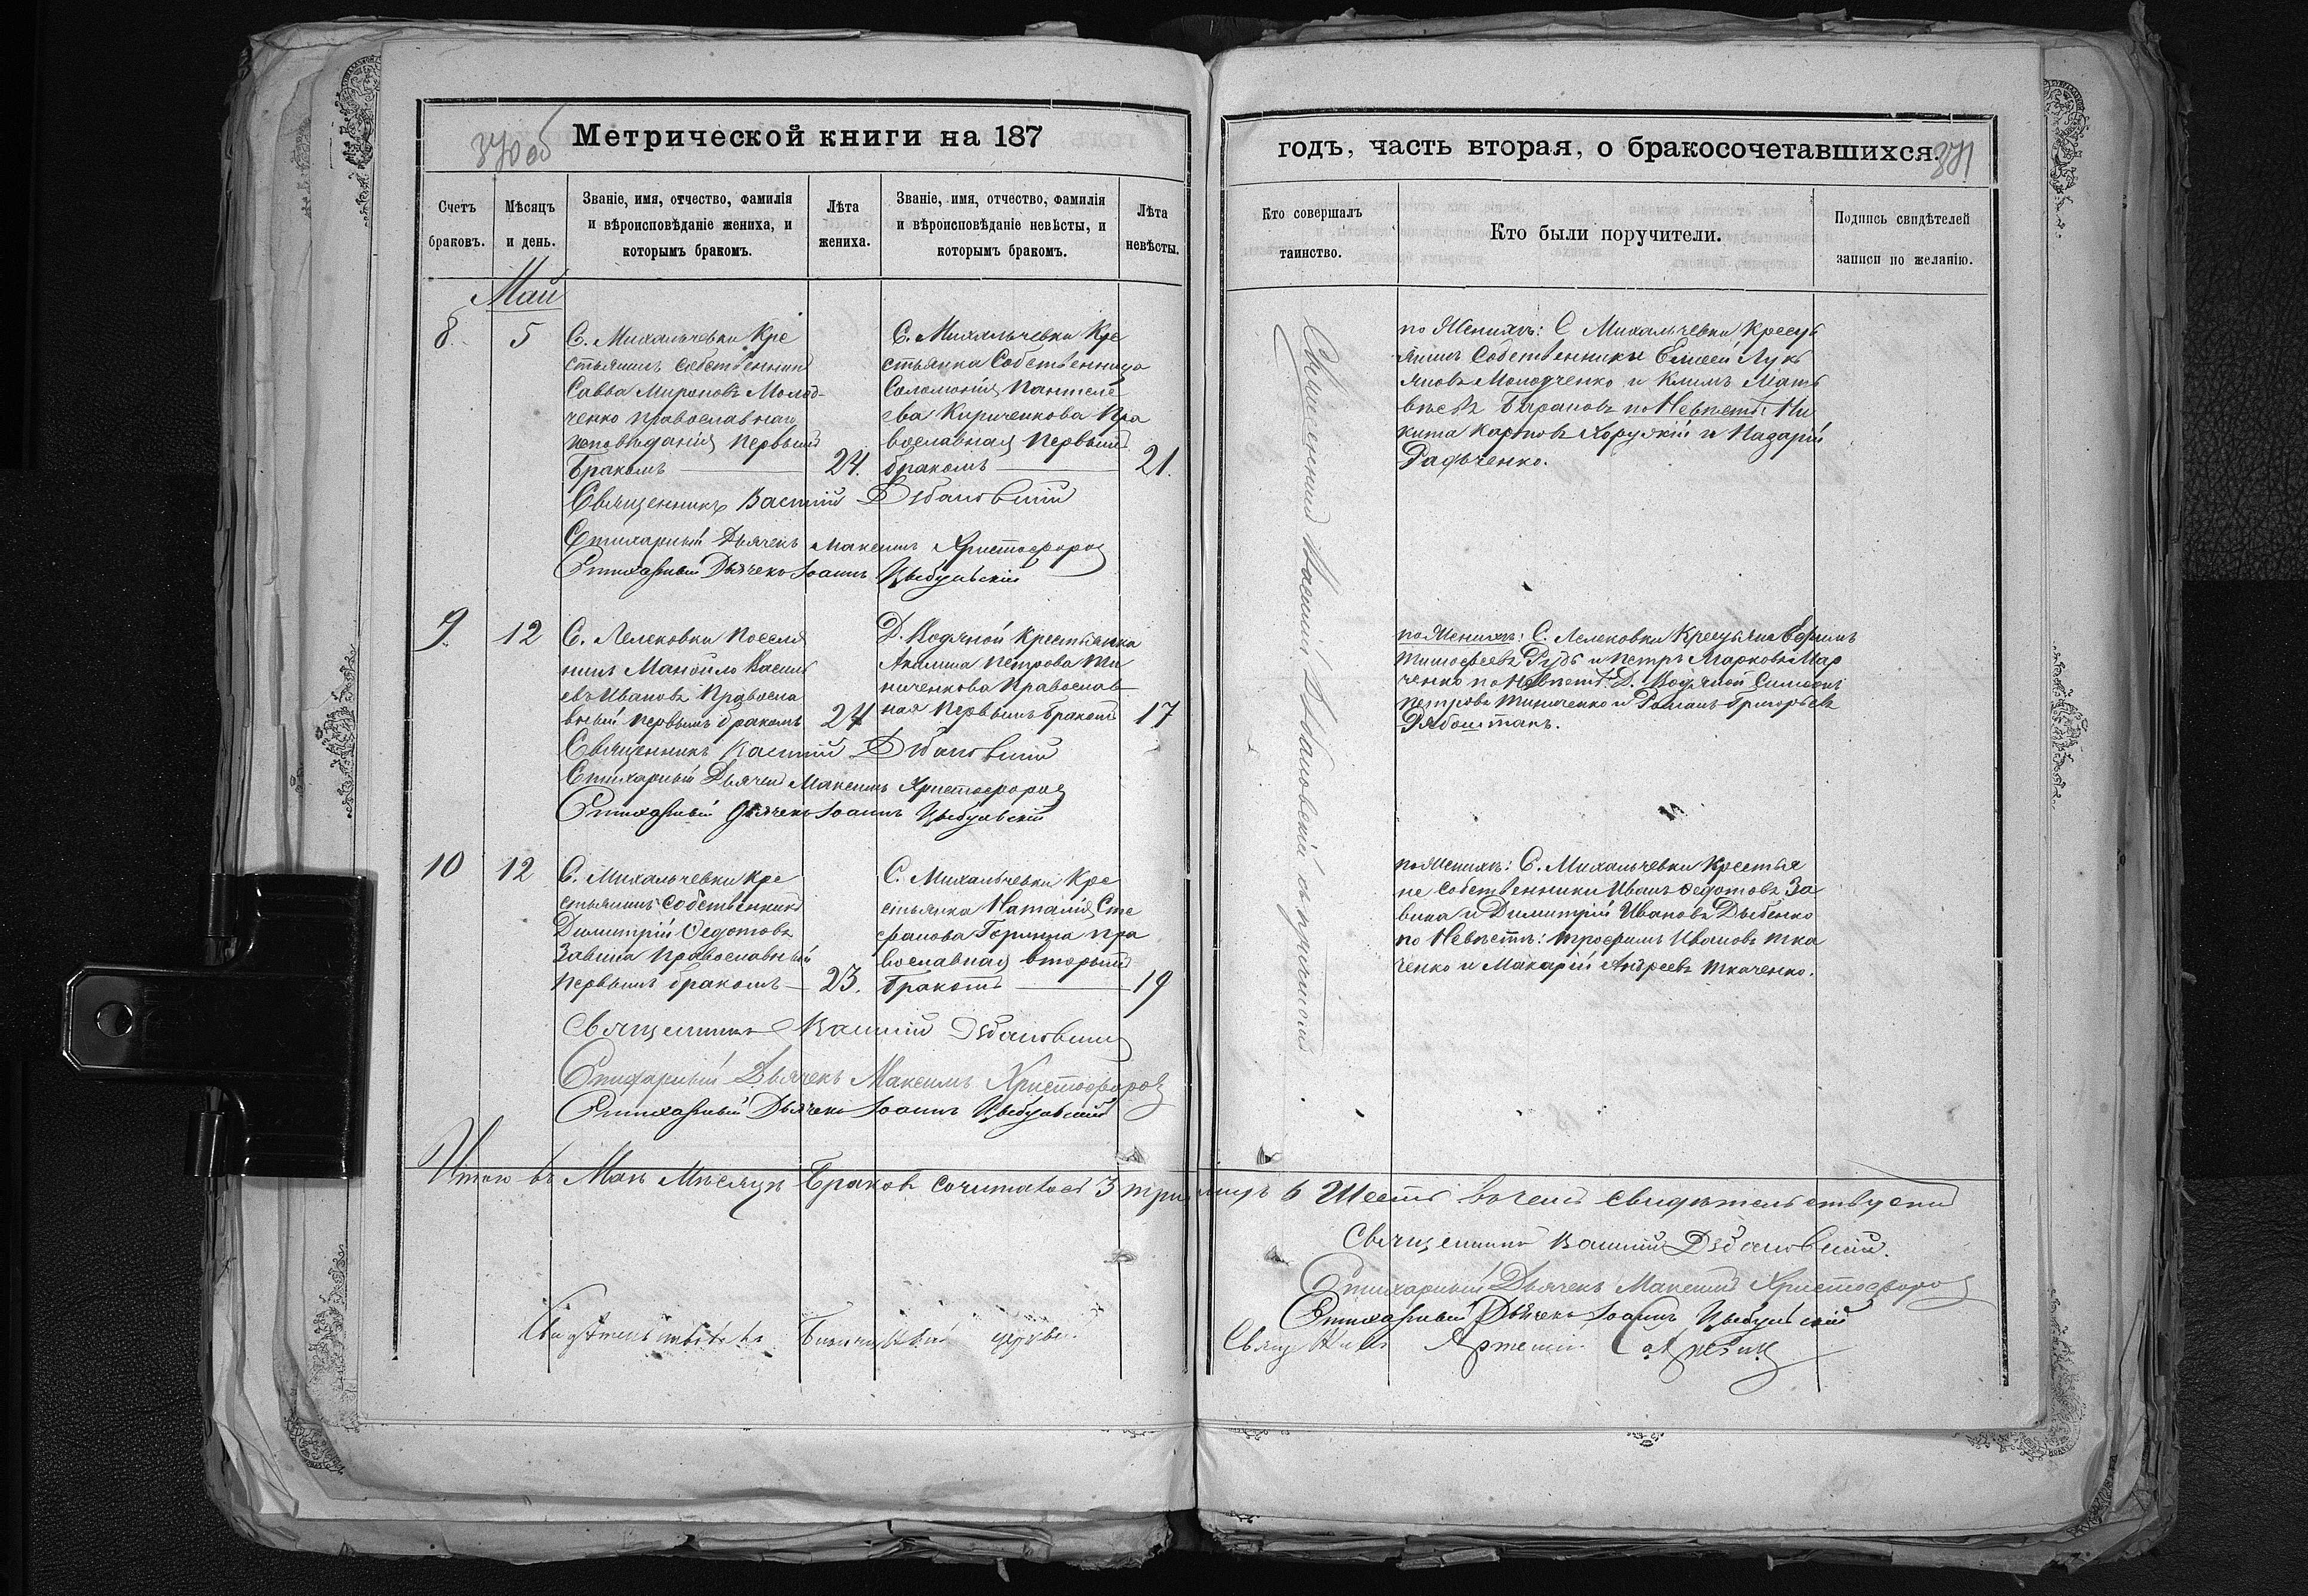 370 об
Метрической книги на 187
Счетъ браковъ.
Мѣсяцъ и день.
Званіе, имя, отчество, фамилія и вѣроисповѣданіе жениха, и которымъ бракомъ.
Лѣта жениха.
Званіе, имя, отчество, фамилія и вѣроисповѣданіе невѣсты, и которымъ бракомъ.
Лѣта невѣсты.
Май
8.
5
С. Михальчевки Кре
стьянинъ собственникъ
Савва Мироновъ Молод-
ченко православнаго
исповѣданія первымъ
бракомъ
24.
С. Михальчевки Кре
стьянка Собственница
Соломонія Пантеле
ева Кириченкова Пра
вославная первымъ
бракомъ
21.
Священникъ Василій
Стихарный Дьячекъ Максимъ Христофоров
Стихарный Дьячекъ Іоаннъ Цыбульскій
9.
12
С. Лелековки Поселя
нинъ Манойло Василь
евъ Ивановъ Правосла
вный первымъ бракомъ
24
Д. Водяной Крестьянка
Акилина Петрова Ми
ниченкова Православ
ная первымъ бракомъ
17
Священникъ Василій
Стихарный Дьячекъ Максимъ Христофоров
Стихарный Дьячекъ Іоаннъ Цыбульскій
10
12
С. Михальчевки Кре
стьянинъ собственникъ
Димитрій Ѳедотовъ
Завина Православный
первымъ бракомъ
23.
С. Михальчевки Кре
стьянка Наталія Сте
фанова пра
вославная вторымъ
бракомъ
19
Священникъ Василій
Стихарный Дьячекъ Максимъ Христофоров
Стихарный Дьячекъ Іоаннъ Цыбульскій
Итого въ Маѣ Мѣсяцѣ Браковъ сочиталось 3 три
Свидѣтельствовалъ церкви
371
годъ, часть вторая, о бракосочетавшихся.
Кто совершалъ таинство.
Кто были поручители.
Подпись свидѣтелей записи по желанію.
Священникъ Василій съ причтомъ
по Женихѣ: С Михальчевки Кресть
янинъ Собственники Елисей Лукь
яновъ Молодченко и Климъ Матв
вѣевъ Барановъ по Невѣстѣ: Ни
кита Карповъ и Назарій
Радченко.
по Женихѣ: С. Лелековки Крестьяне Ефимъ
Тимофеевъ Рудь и Петръ Марковъ Мар
ченко по Невѣстѣ: Д. Водяной Симеонъ
Петровъ Миниченко и Романъ Григорьевъ
Рябошапъ.
по Женихѣ: С. Михальчевки Крестья
не собственники Иванъ Ѳедотовъ За
вина и Димитрій Ивановъ Дыбенко
по Невѣстѣ: Трофимъ Ивановъ Тка
ченко и Макарій Андреевъ Ткаченко.
лицъ 6 Шесть въ чемъ свидѣтельствуемъ
Священникъ Василій
Стихарный Дьячекъ Максимъ Христофоров
Стихарный Дьячекъ Іоаннъ Цыбульскій
Священникъ Артемій